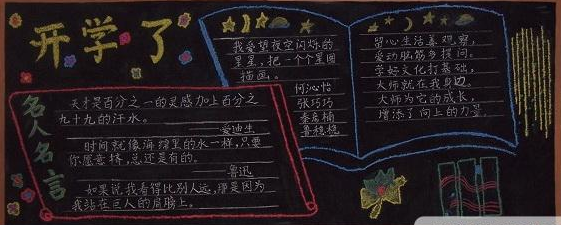 开学了
名人名言
天才是百分之一的灵感加上百分之
九十九的汗水。
——爱迪生
时间就像海绵里的水一样，只要
你愿意挤，总还是有的。
——鲁迅
如果说我看得比别人远，那是因为
我站在巨人的肩膀上。
我爱望夜空闪烁的
星星，把一个个星圆
描画。
何沁怡
张巧巧
秦启楠
留心生活善观察，
爱动脑筋多提问。
学好文化打基础，
大师就在我身边。
大师为它的成长，
增添了向上的力量。